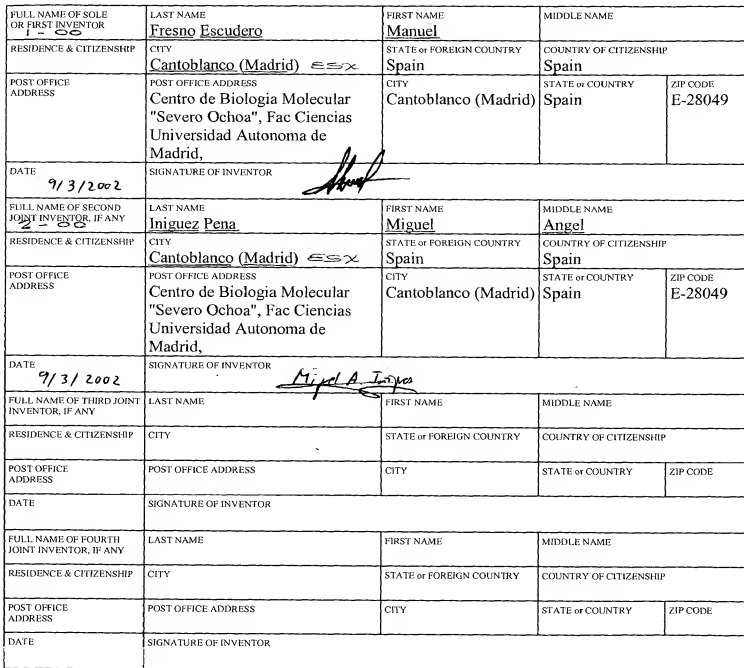 FULL NAME OF SOLE
OR FIRST INVENTOR
1 - 00
LAST NAME
Fresno Escudero
FIRST NAME
Manuel
MIDDLE NAME
RESIDENCE & CITIZENSHIP
CITY
Cantoblanco (Madrid) ESX
STATE or FOREIGN COUNTRY
Spain
COUNTRY OF CITIZENSHIP
Spain
POST OFFICE
ADDRESS
POST OFFICE ADDRESS
Centro de Biologia Molecular
"Severo Ochoa", Fac Ciencias
Universidad Autonoma de
Madrid,
CITY
Cantoblanco (Madrid)
STATE or COUNTRY
Spain
ZIP CODE
E-28049
DATE
9/3/2002
SIGNATURE OF INVENTOR
FULL NAME OF SECOND
JOINT INVENTOR, IF ANY
2 - 00
LAST NAME
Iniguez Pena
FIRST NAME
Miguel
MIDDLE NAME
Angel
RESIDENCE & CITIZENSHIP
CITY
Cantoblanco (Madrid) ESX
STATE or FOREIGN COUNTRY
Spain
COUNTRY OF CITIZENSHIP
Spain
POST OFFICE
ADDRESS
POST OFFICE ADDRESS
Centro de Biologia Molecular
"Severo Ochoa", Fac Ciencias
Universidad Autonoma de
Madrid,
CITY
Cantoblanco (Madrid)
STATE or COUNTRY
Spain
ZIP CODE
E-28049
DATE
9/3/2002
SIGNATURE OF INVENTOR
FULL NAME OF THIRD JOINT
INVENTOR, IF ANY
LAST NAME
FIRST NAME
MIDDLE NAME
RESIDENCE & CITIZENSHIP
CITY
STATE or FOREIGN COUNTRY
COUNTRY OF CITIZENSHIP
POST OFFICE
ADDRESS
POST OFFICE ADDRESS
CITY
STATE or COUNTRY
ZIP CODE
DATE
SIGNATURE OF INVENTOR
FULL NAME OF FOURTH
JOINT INVENTOR, IF ANY
LAST NAME
FIRST NAME
MIDDLE NAME
RESIDENCE & CITIZENSHIP
CITY
STATE or FOREIGN COUNTRY
COUNTRY OF CITIZENSHIP
POST OFFICE
ADDRESS
POST OFFICE ADDRESS
CITY
STATE or COUNTRY
ZIP CODE
DATE
SIGNATURE OF INVENTOR